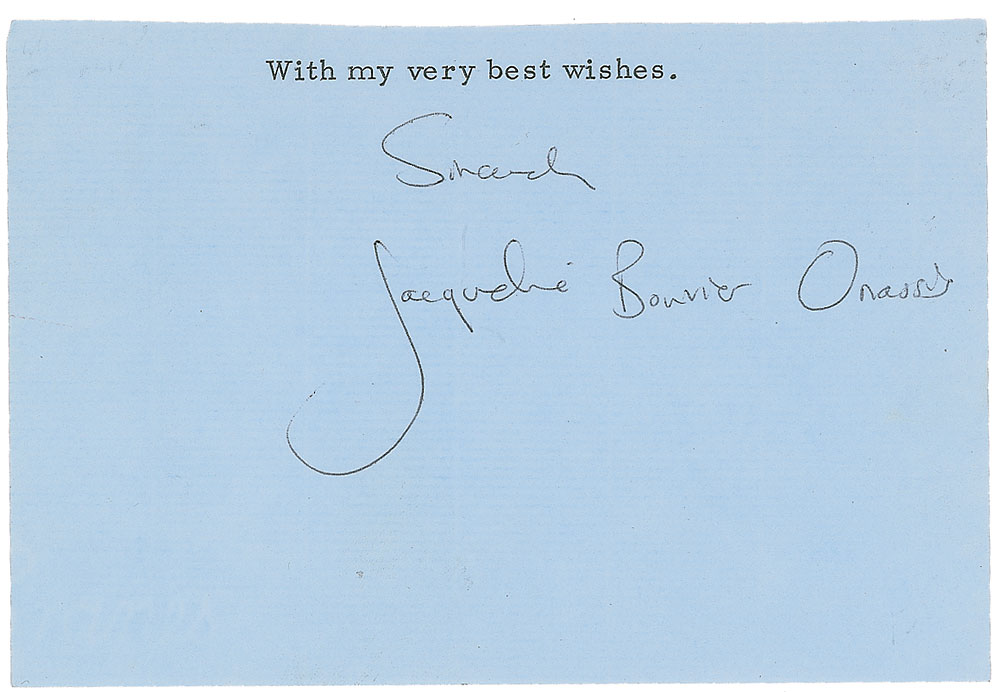 With my very best wishes.
Sincerely
Jacqueline Bouvier Onassis